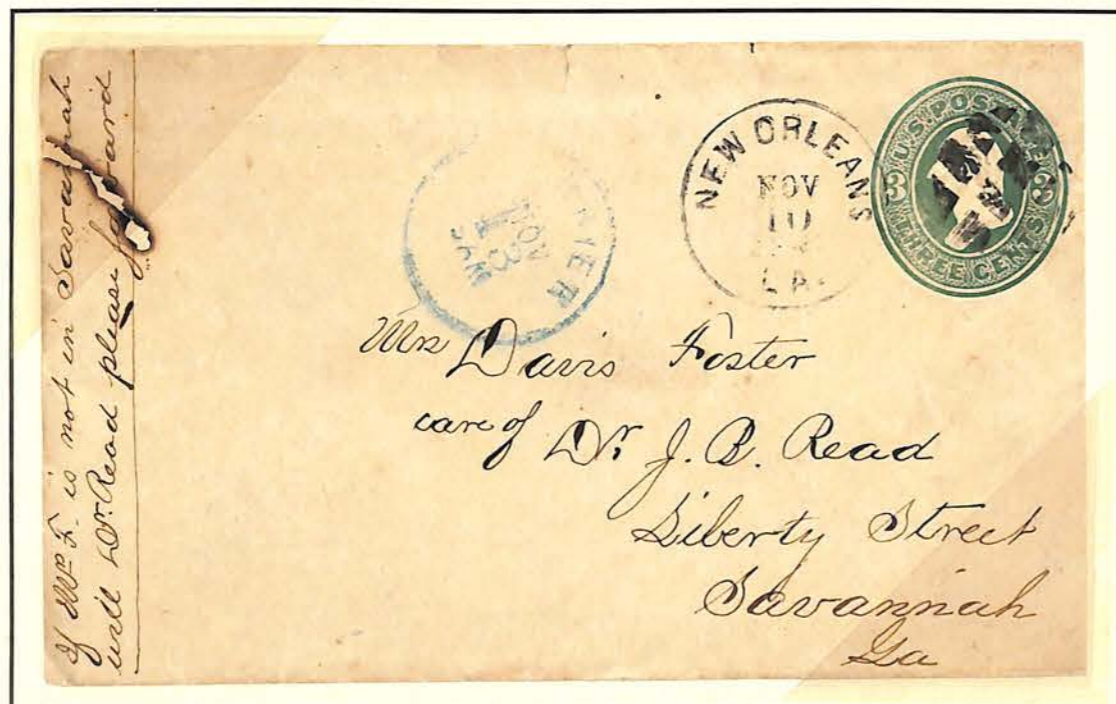 If Mrs F. is not in Savannah
will Dr Read please forward
NEW ORLEANS
NOV
10
LA.
U.S. POSTAGE
3 3
THREE CENTS
NOV
13
Mrs Davis Foster
care of Dr J. B. Read
Liberty Street
Savannah
Ga